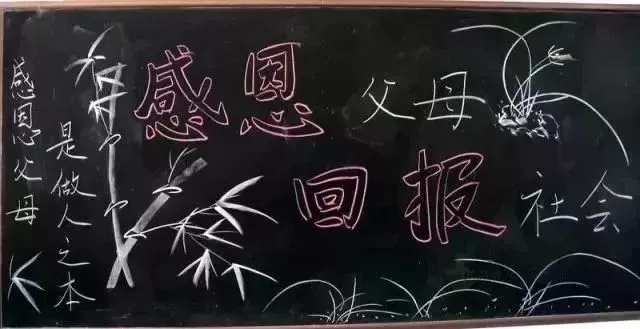 感恩父母
是做人之本
感恩父母
回报社会